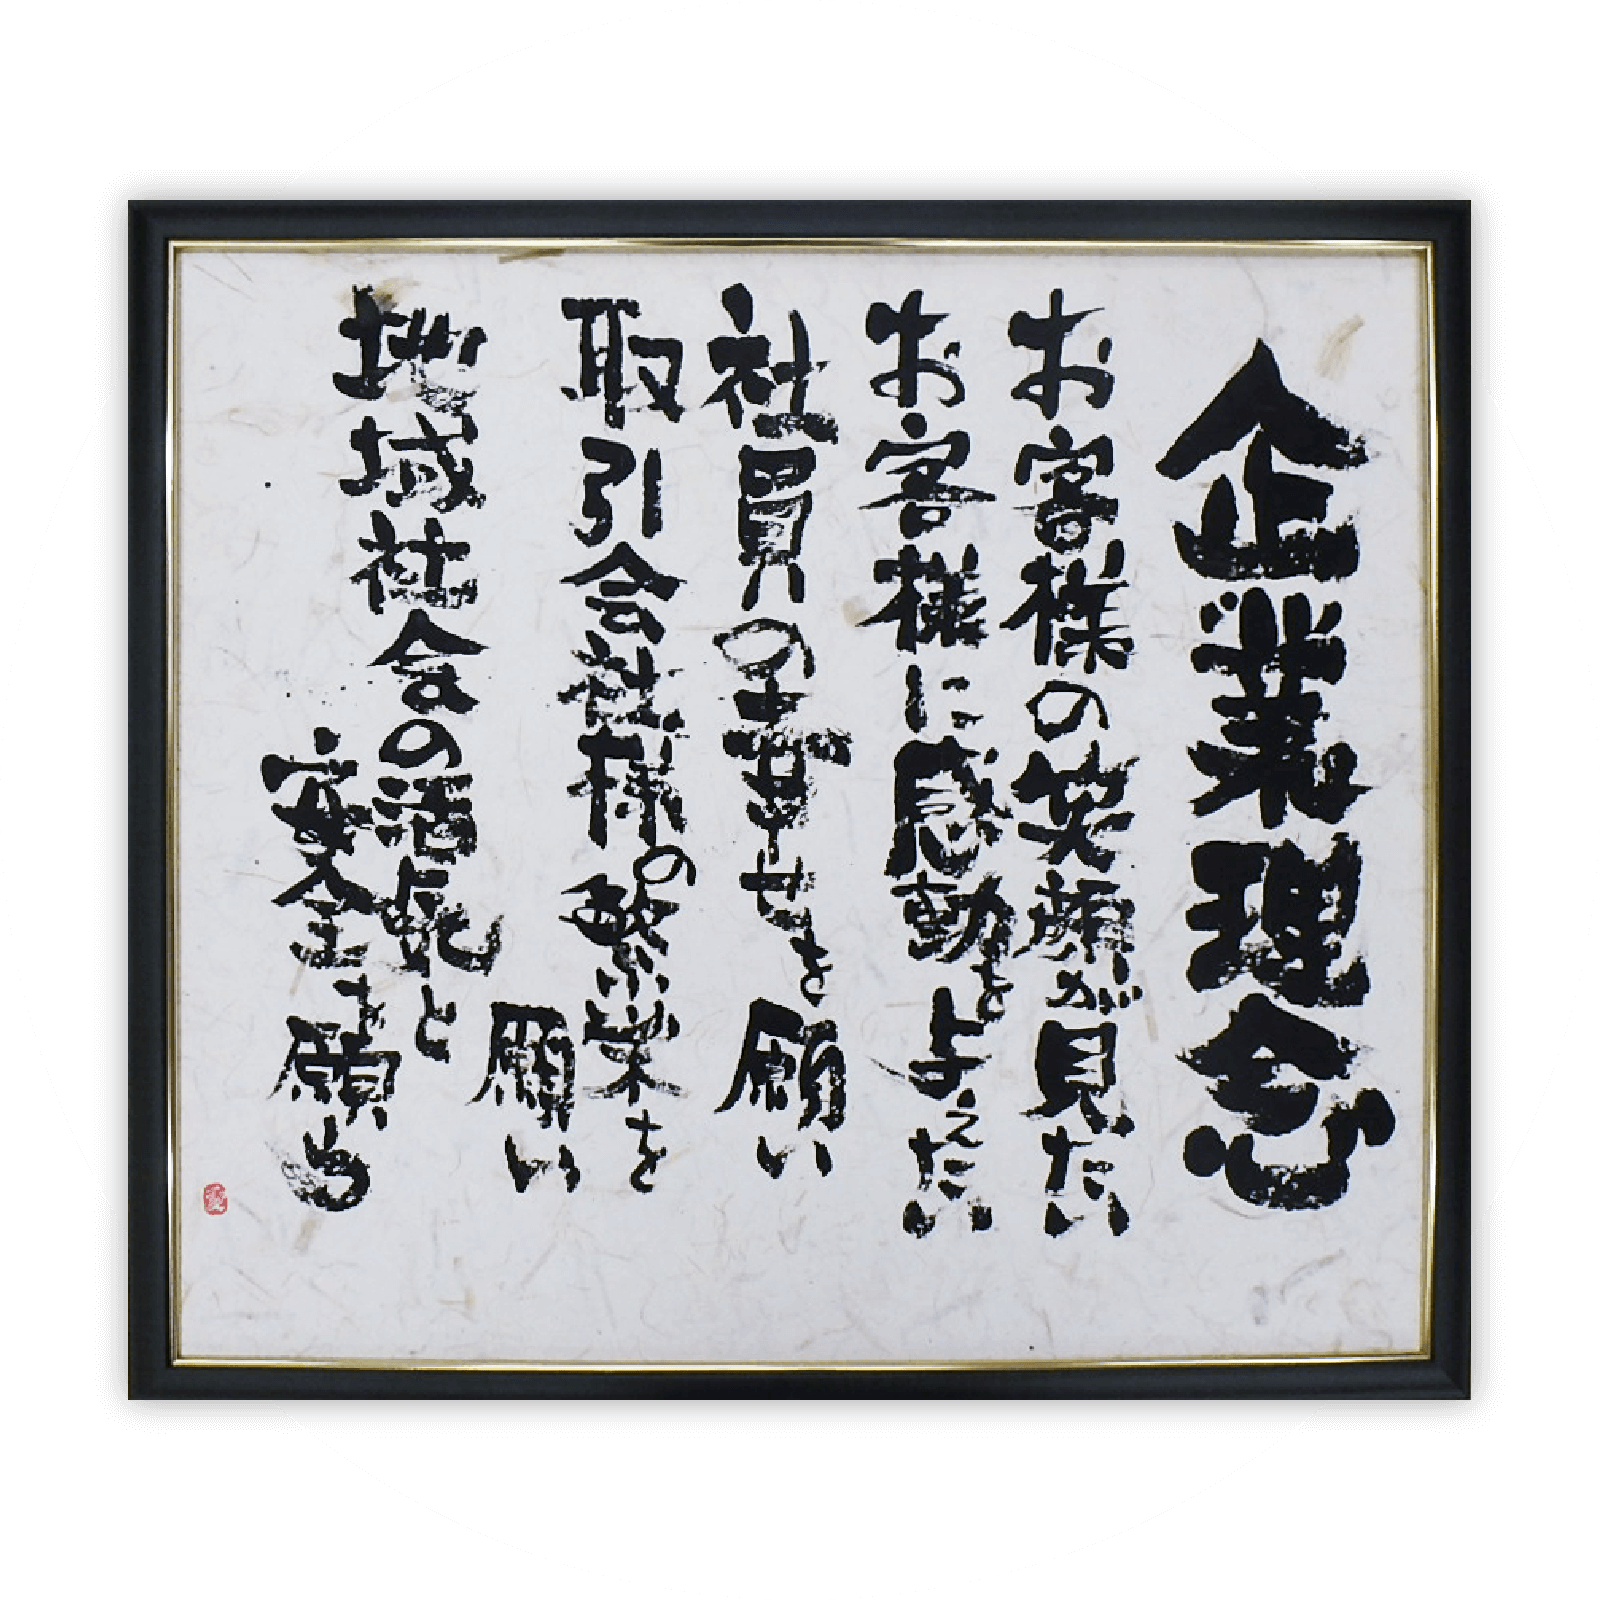 企業理念
お客様の笑顔が見たい
お客様に感動を与えたい
社員の幸せを願い
取引会社様の繁栄を
願い
地域社会の活気と
安全を願う